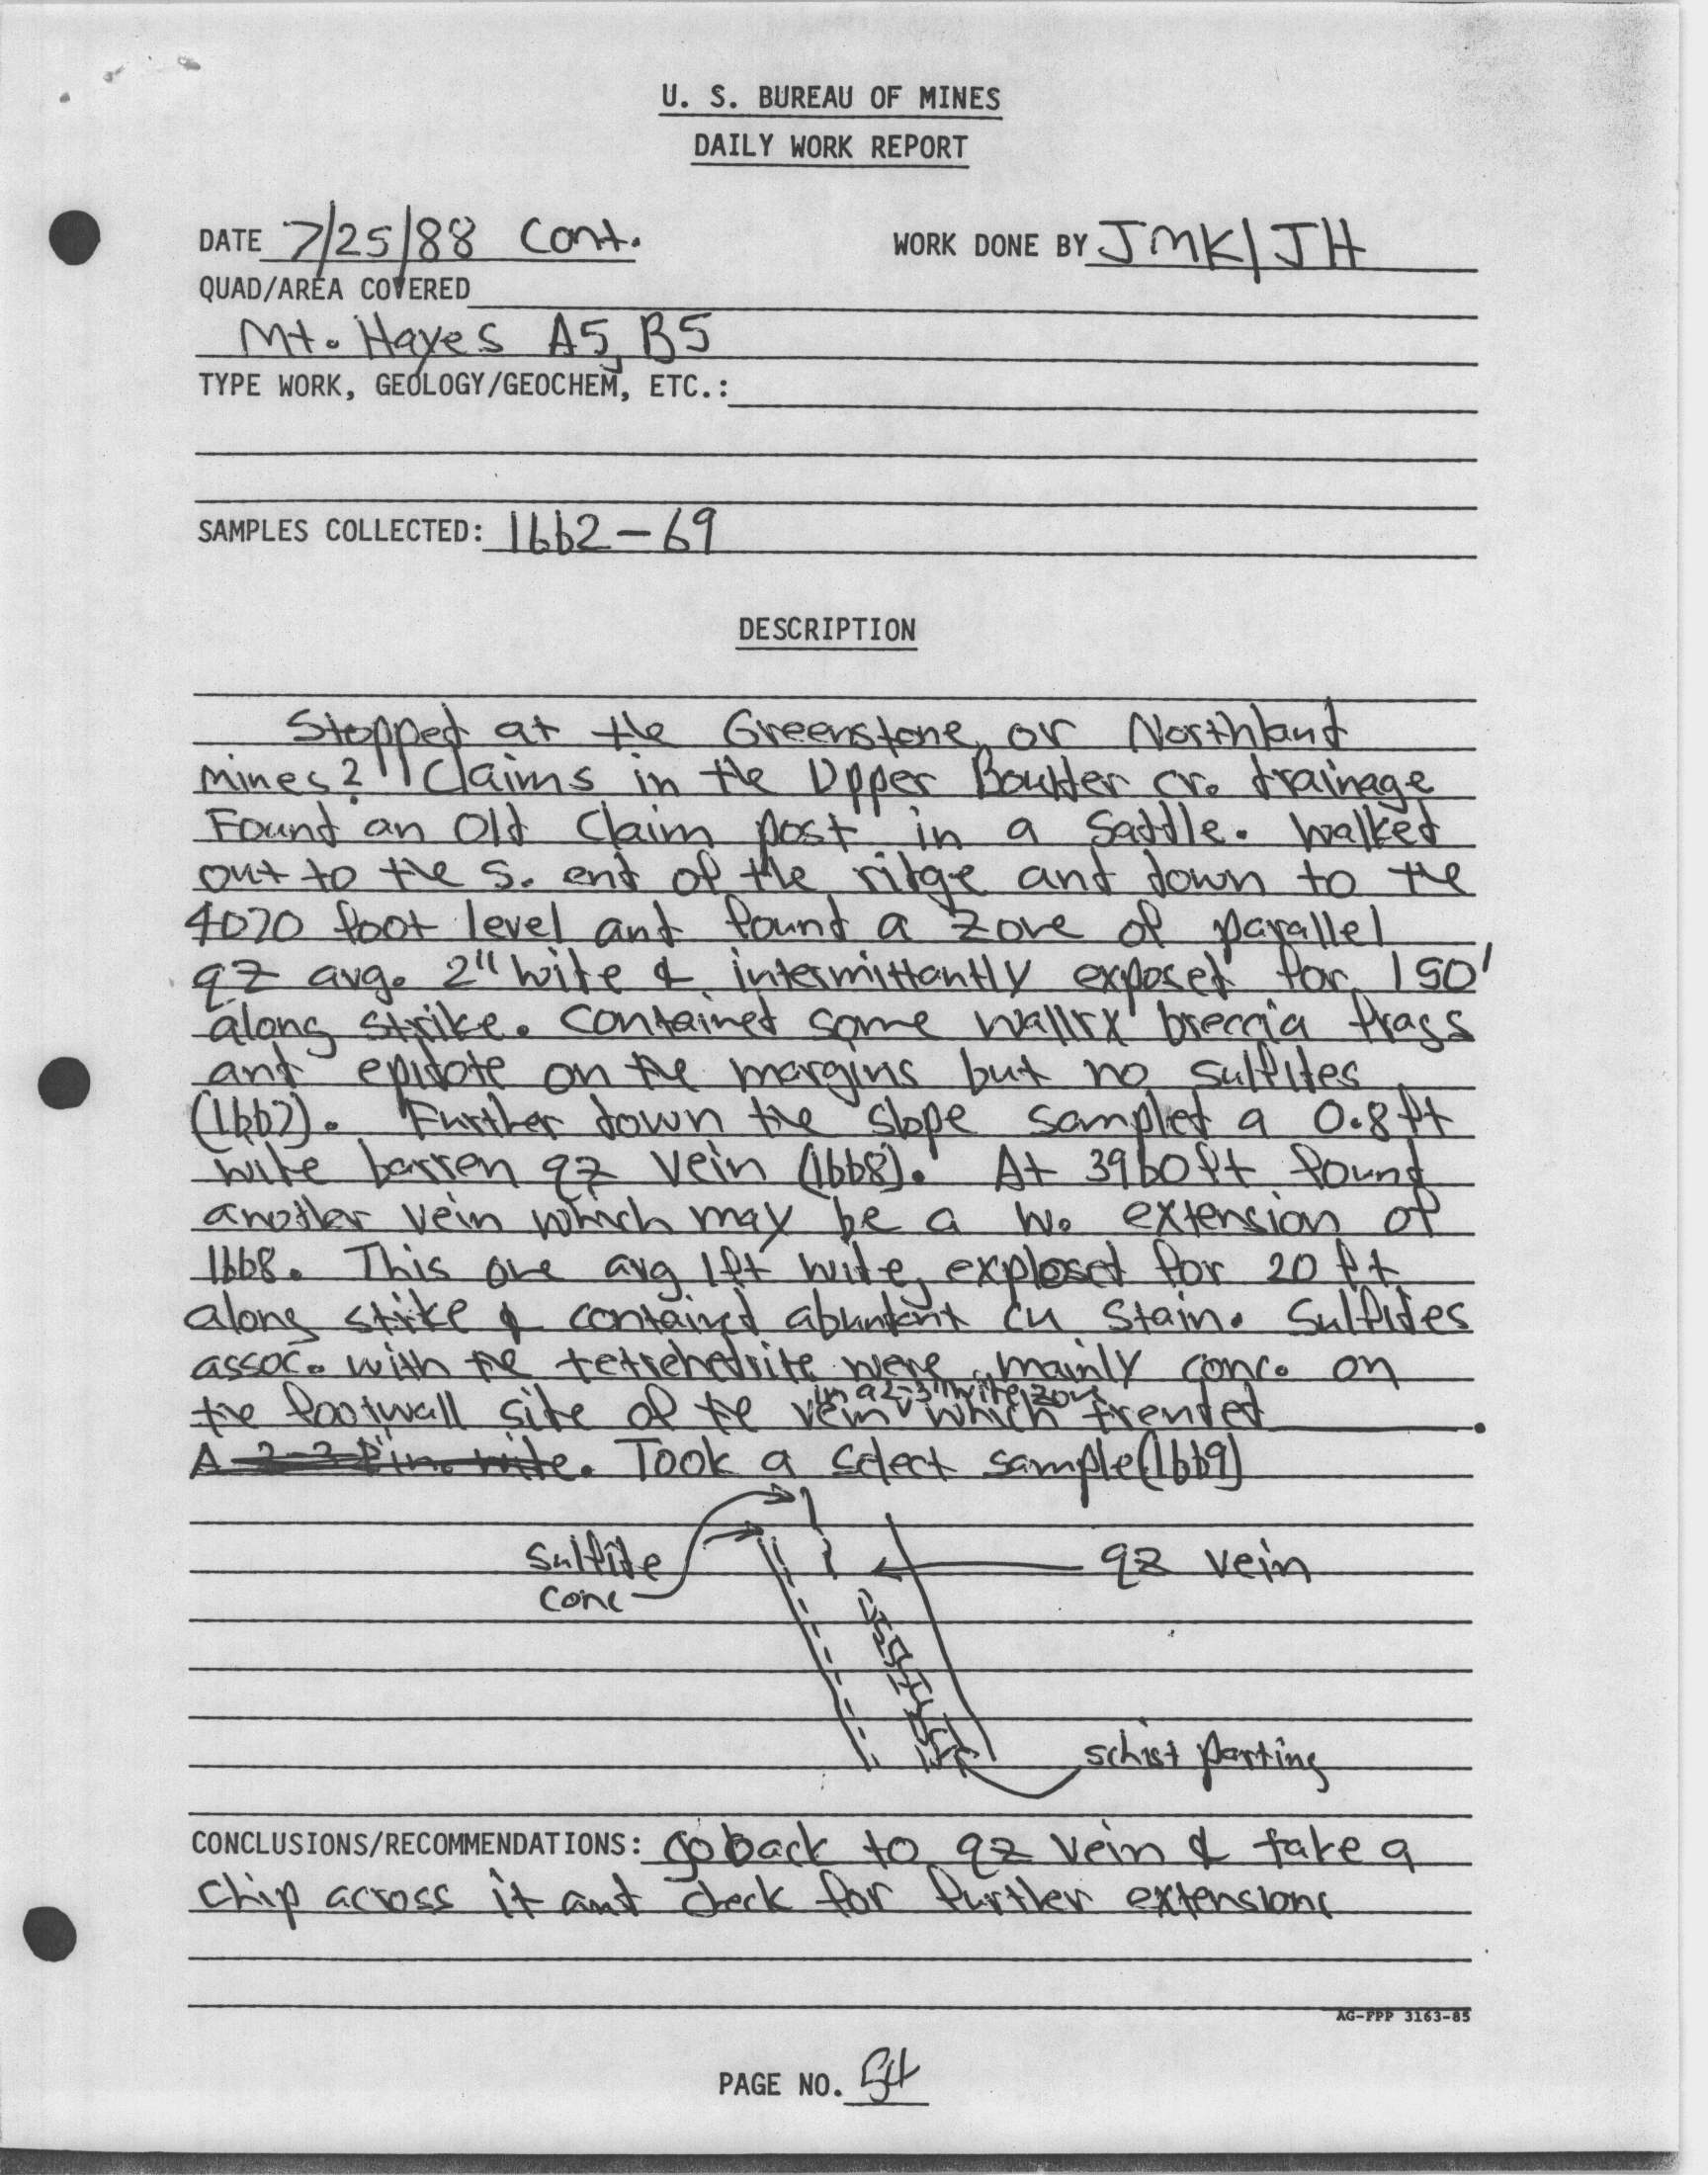 U. S. BUREAU OF MINES
DAILY WORK REPORT
DATE 7/25/88 Cont. WORK DONE BY JMK/JH
QUAD/AREA COVERED
Mt. Hayes A5, B5
TYPE WORK, GEOLOGY/GEOCHEM, ETC.:
SAMPLES COLLECTED: 1662-69
DESCRIPTION
Stopped at the Greenstone, or Northland
mines? Claims in the Upper Boulder cr. drainage
Found an old claim post in a saddle. Walked
out to the S. end of the ridge and down to the
4070 foot level and found a zone of parallel
qz avg. 2" wide & intermittantly exposed for 150'
along strike. Contained some wallrx breccia frags
and epidote on the margins but no sulfides
(1667). Further down the slope sampled a 0.8 ft
wide barren qz vein (1668). At 3960 ft found
another vein which may be a w. extension of
1668. This one avg 1 ft wide, exposed for 20 ft
along strike & contained abundant cu stain. Sulfides
assoc. with the tetrehedrite were mainly conc. on
in a 2-3" wide zone
the footwall side of the vein which trended .
A 2-3 in. wide. Took a select sample (1669)
sulfide
conc
qz vein
schist parting
CONCLUSIONS/RECOMMENDATIONS: Go back to qz vein & take a
chip across it and check for further extensions
AG-FPP 3163-85
PAGE NO. 54